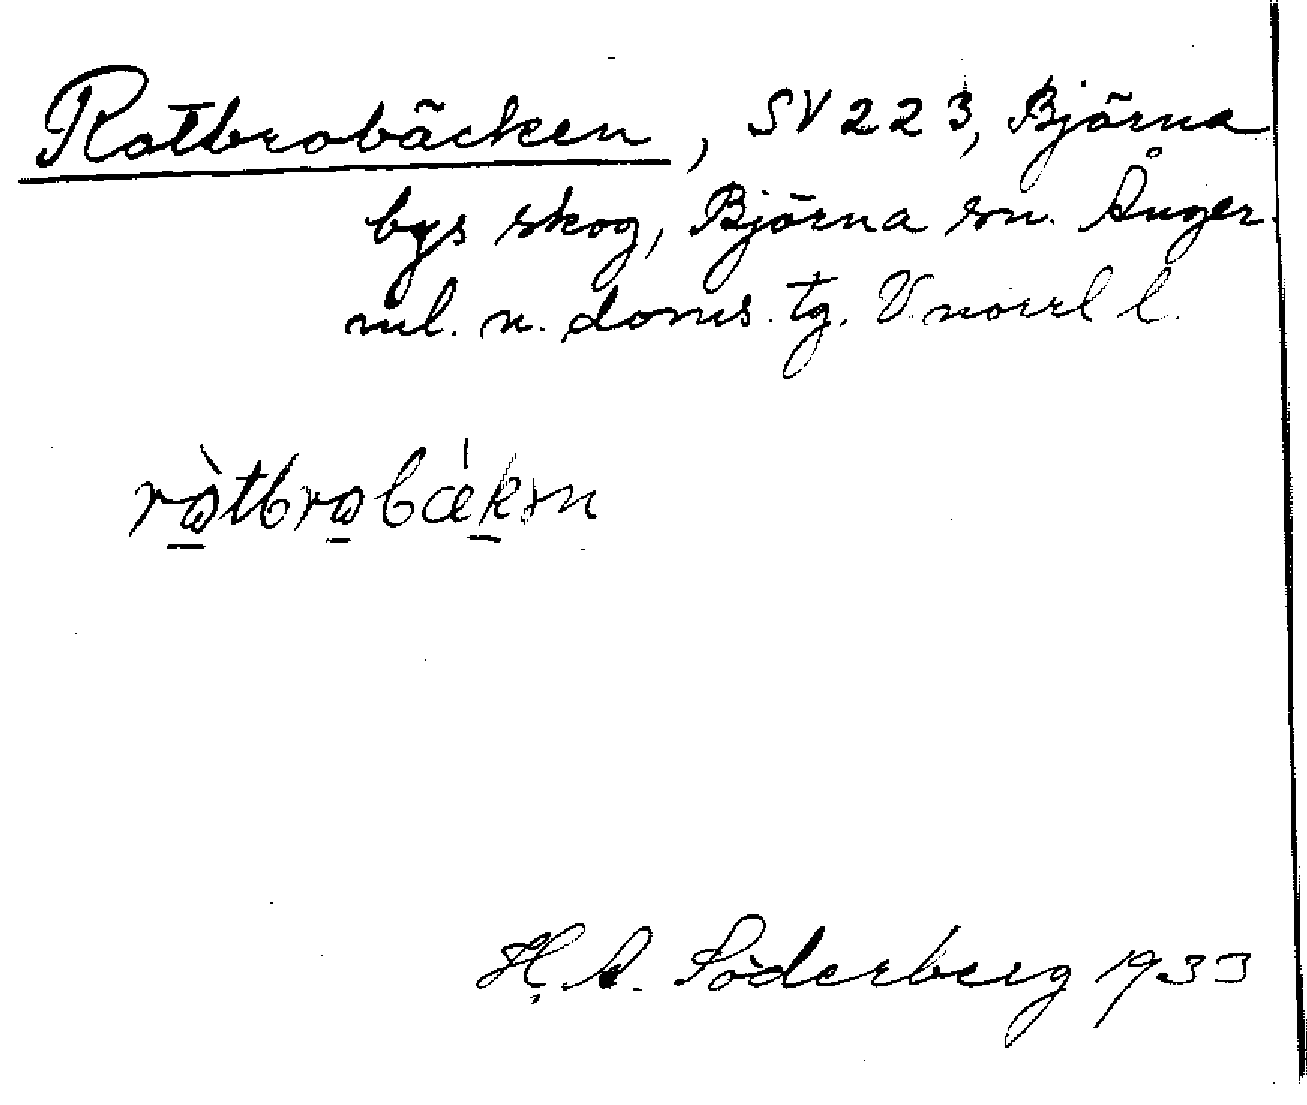 Rotbrobäcken, SV 223, Björna
bys skog, Björna sn. Ånger-
ml. n. doms. tg. V.norrl l.
ròtbrobǽkən
H. A. Söderberg 1933